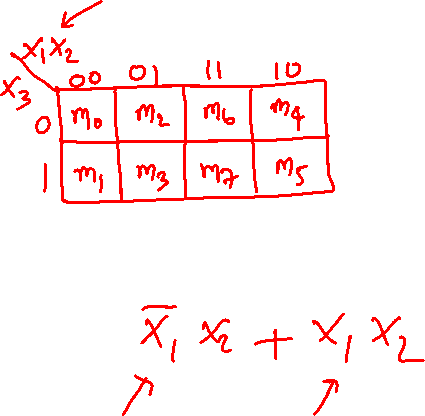 x₁x₂
00 01 11 10
x₃
0 m₀ m₂ m₆ m₄
1 m₁ m₃ m₇ m₅
x̅₁ x₂ + x₁ x₂